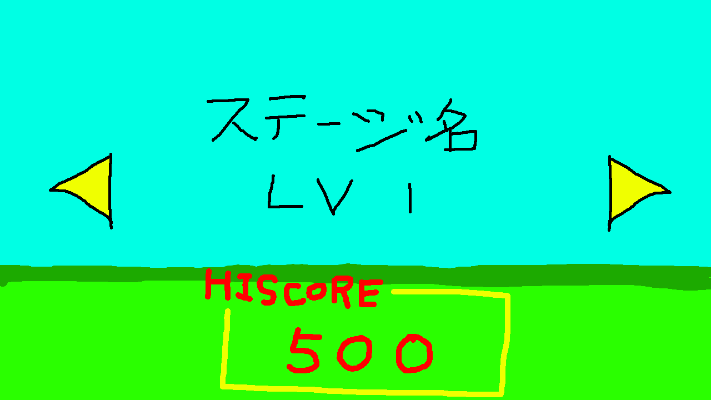 ステージ名
LV 1
HISCORE
500